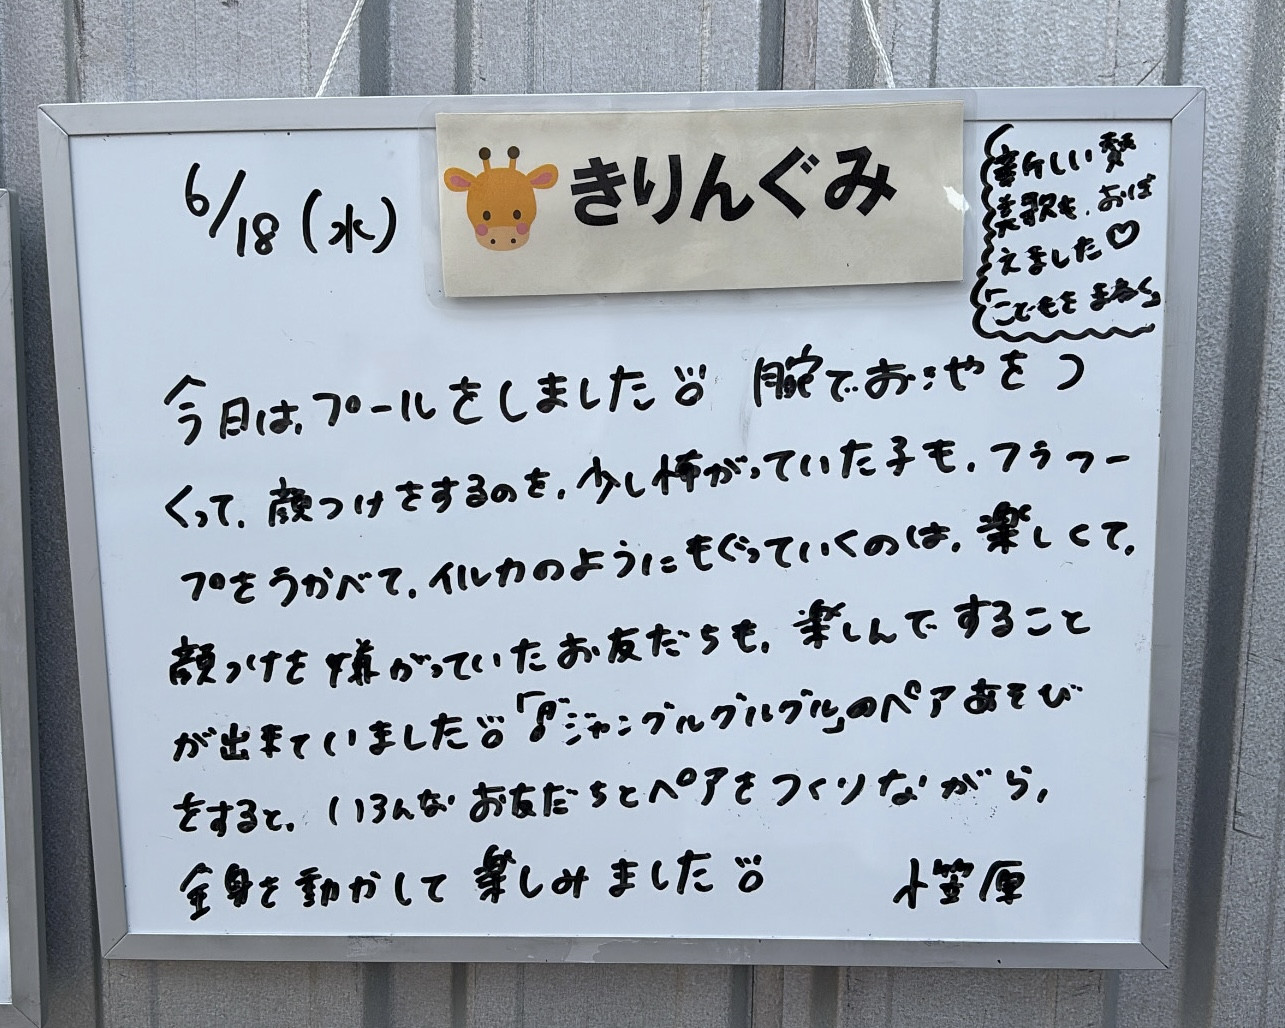 6/18(水)
きりんぐみ
新しい賛
美歌も、おぼ
えました♡
「こどもを まねく」
今日は、プールをしました 腕でおこやをつ
くって、顔つけをするのを、少し怖がっていた子も、フラフー
プをうかべて、イルカのようにもぐっていくのは、楽しくて、
顔つけを嫌がっていたお友だちも、楽しんですること
が出来ていました「♪ジャングルグルグル」のペアあそび
をすると、いろんなお友だちとペアをつくりながら、
全身を動かして楽しみました 小笠原